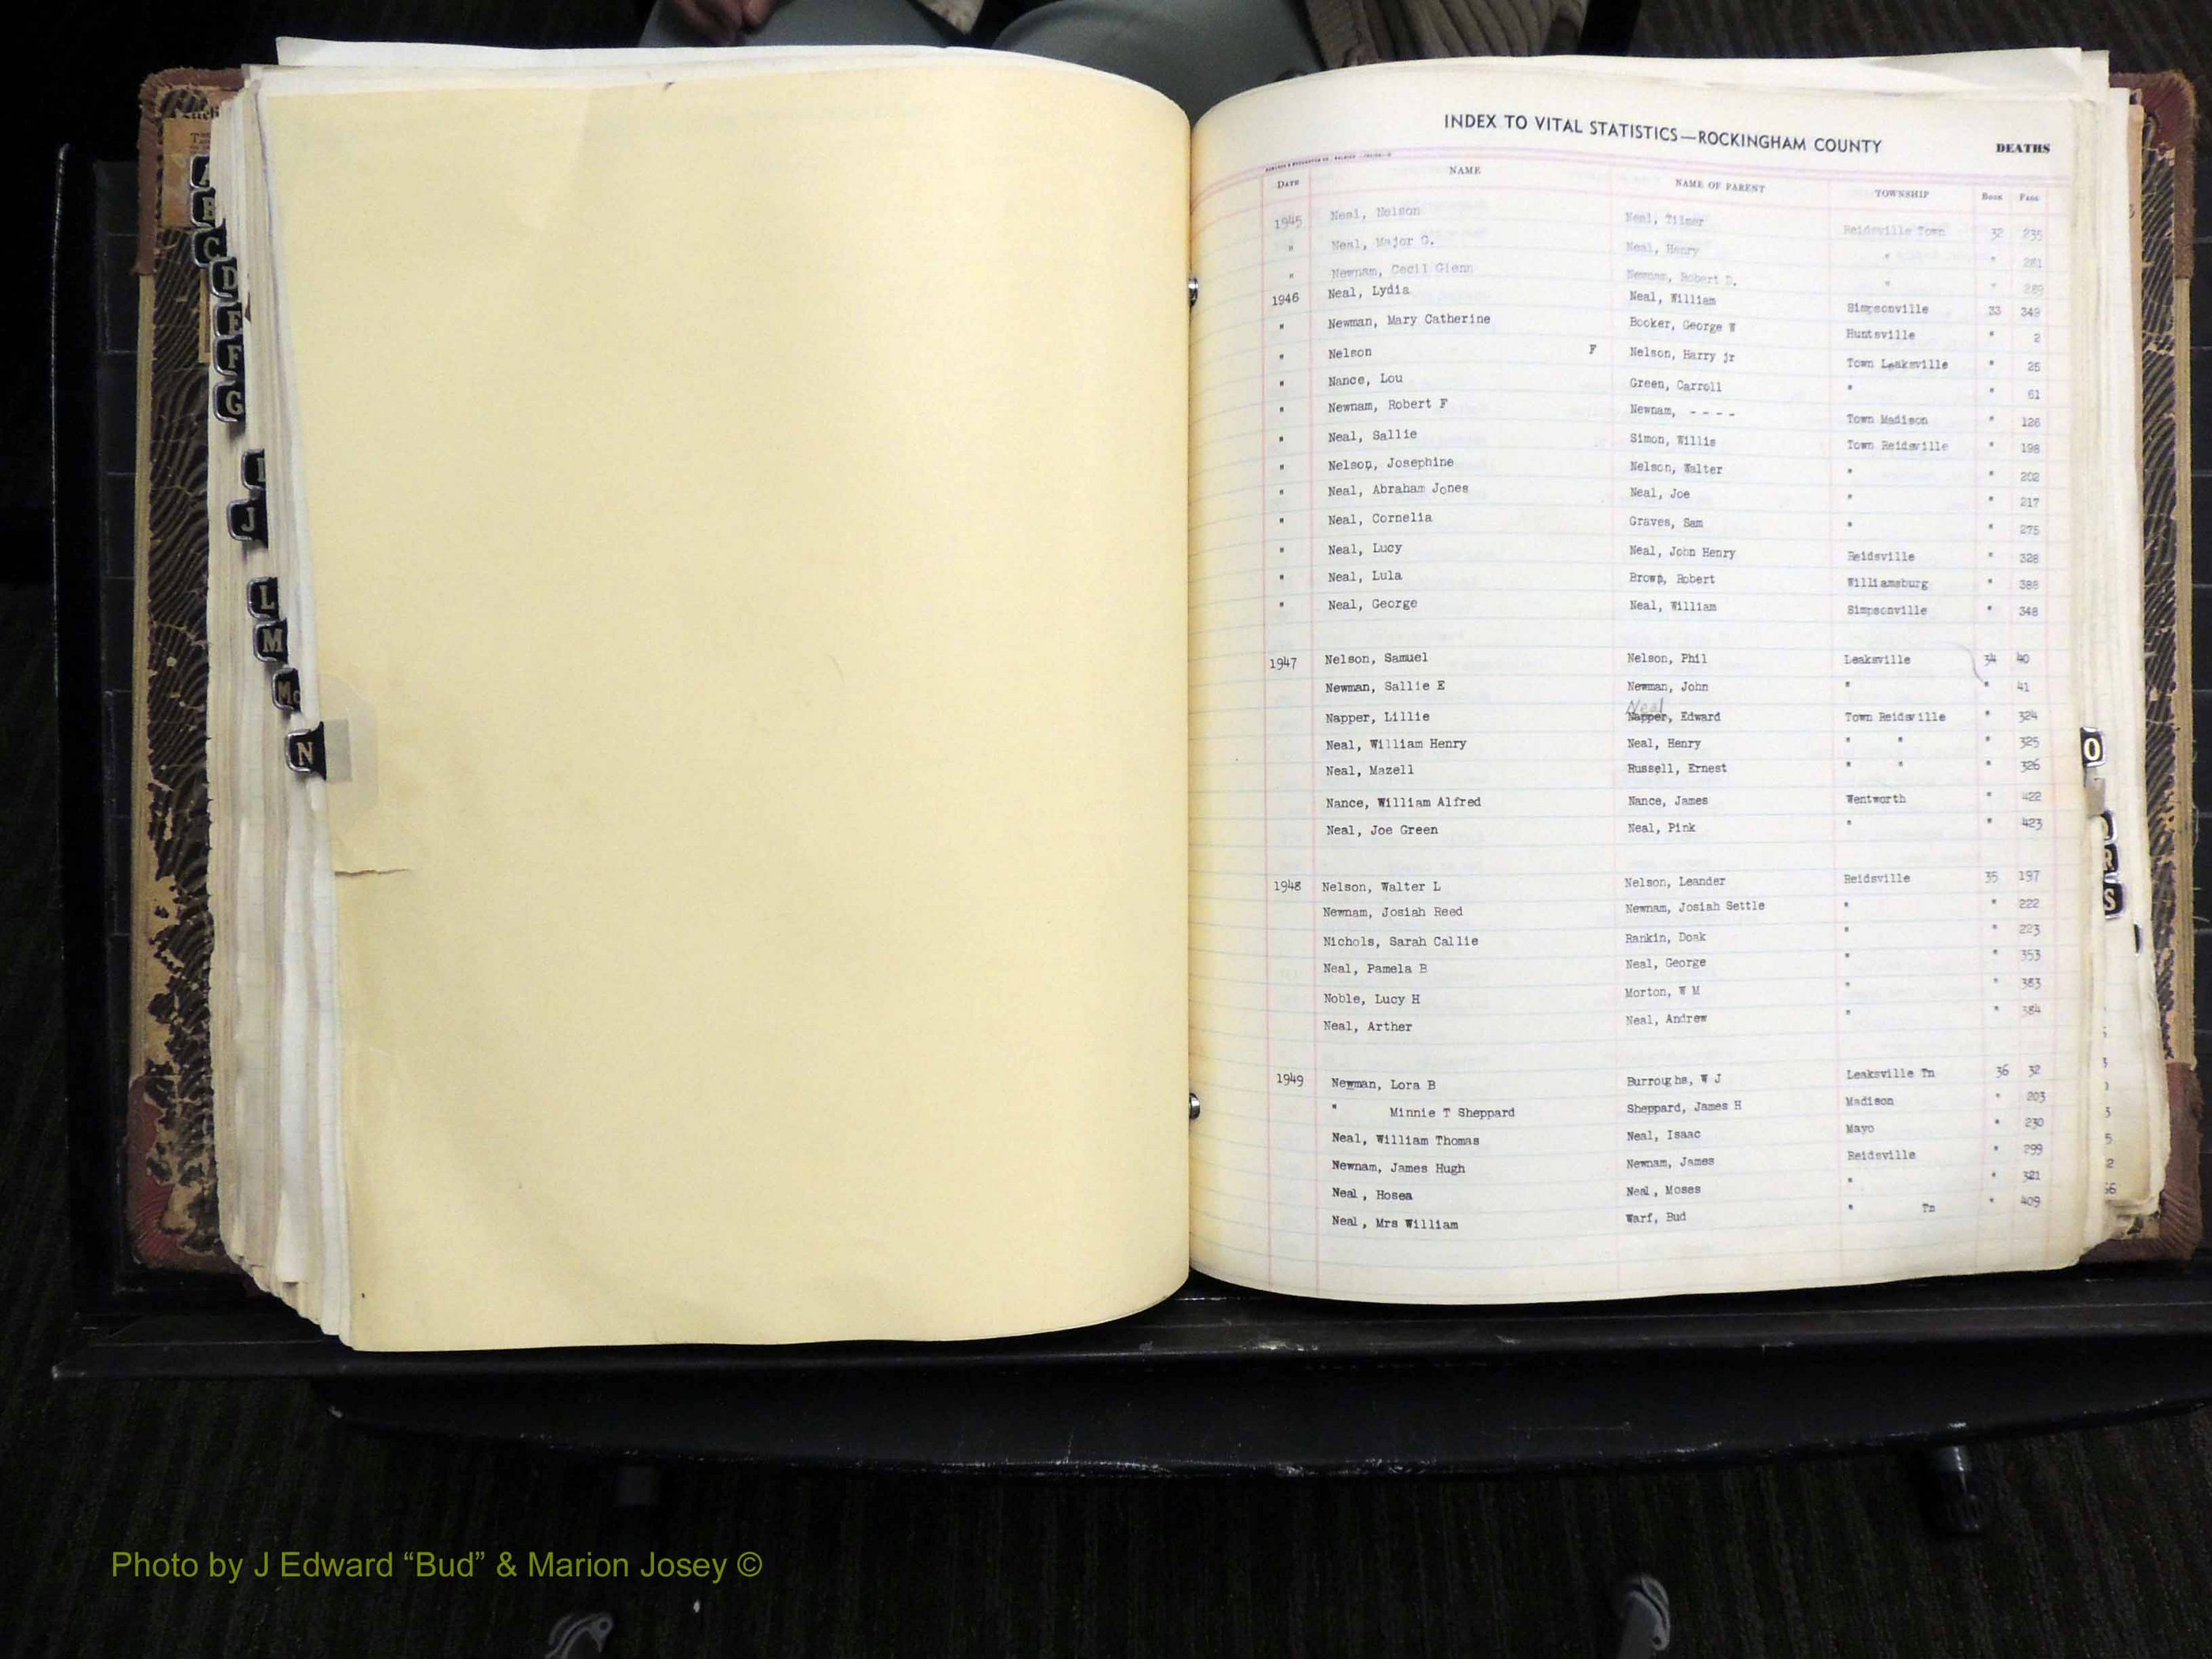 A
B
C
D
E
F
G
I
J
L
M
Mc
N
INDEX TO VITAL STATISTICS—ROCKINGHAM COUNTY DEATHS
DATE NAME NAME OF PARENT TOWNSHIP BOOK PAGE
1945 Neal, Nelson Neal, Tilmer Reidsville Town 32 235
" Neal, Major G. Neal, Henry " " 281
" Newnam, Cecil Glenn Newnam, Robert D. " " 289
1946 Neal, Lydia Neal, William Simpsonville 33 349
" Newman, Mary Catherine Booker, George W Huntsville " 2
" Nelson F Nelson, Harry jr Town Leaksville " 25
" Nance, Lou Green, Carroll " " 61
" Newnam, Robert F Newnam, - - - - Town Madison " 126
" Neal, Sallie Simon, Willis Town Reidsville " 198
" Nelson, Josephine Nelson, Walter " " 202
" Neal, Abraham Jones Neal, Joe " " 217
" Neal, Cornelia Graves, Sam " " 275
" Neal, Lucy Neal, John Henry Reidsville " 328
" Neal, Lula Brown, Robert Williamsburg " 388
" Neal, George Neal, William Simpsonville " 348
1947 Nelson, Samuel Nelson, Phil Leaksville 34 40
Newman, Sallie E Newman, John " " 41
Neal
Napper, Lillie Napper, Edward Town Reidsville " 324
Neal, William Henry Neal, Henry " " " 325
Neal, Mazell Russell, Ernest " " " 326
Nance, William Alfred Nance, James Wentworth " 422
Neal, Joe Green Neal, Pink " " 423
1948 Nelson, Walter L Nelson, Leander Reidsville 35 197
Newnam, Josiah Reed Newnam, Josiah Settle " " 222
Nichols, Sarah Callie Rankin, Doak " " 223
Neal, Pamela B Neal, George " " 353
Noble, Lucy H Morton, W M " " 383
Neal, Arther Neal, Andrew " " 384
1949 Newman, Lora B Burroughs, W J Leaksville Tn 36 32
" Minnie T Sheppard Sheppard, James H Madison " 203
Neal, William Thomas Neal, Isaac Mayo " 230
Newnam, James Hugh Newnam, James Reidsville " 299
Neal, Hosea Neal, Moses " " 321
Neal, Mrs William Warf, Bud " Tn " 409
O
R
S
Photo by J Edward “Bud” & Marion Josey ©